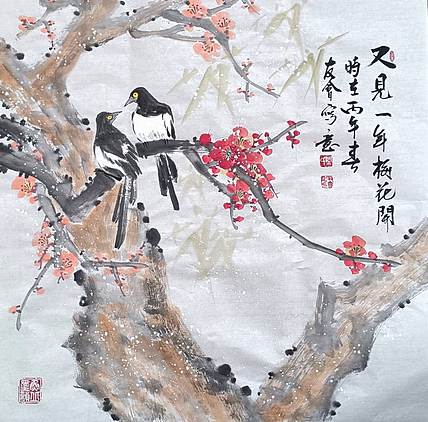 又見一年梅花開
時在丙午春
友會寫意